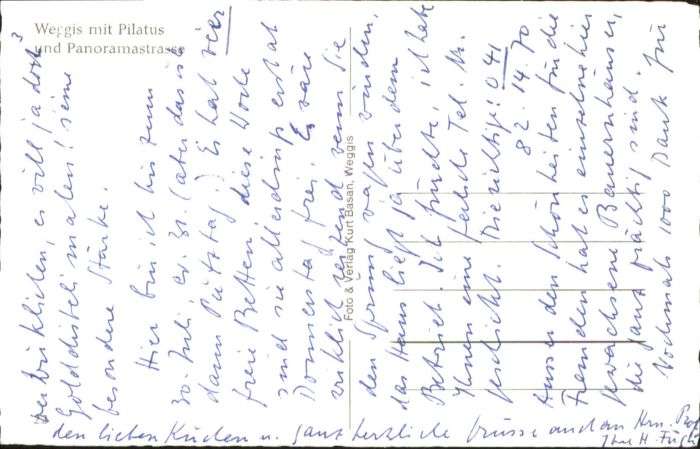 Weggis mit Pilatus
und Panoramastrasse
Foto & Verlag Kurt Basan, Weggis
verwirklichen, er will ja doch
Golddisteli malen! seine
besondere Stärke.
Hier bin ich bis zum
30. Juli, ev. 31. (aber das ist
dann Putztag!) Es hat vier
freie Betten, diese Woche
sind sie allerdings erst ab
Donnerstag frei. Es wäre
wirklich reizend wenn Sie
den Sprung wagen würden,
das Haus liegt ja über dem
Betrieb. Ich fürchte, ich habe
Ihnen eine falsche Tel. Nr.
geschickt. Die richtige: 041
82.14.70
Ausser den Schönheiten für die
Fremden hat es einzelne hier
gewachsene Bauernhäuser,
die ganz prächtig sind.
Nochmals 1000 Dank für
den lieben Kuchen u. ganz herzliche Grüsse auch an Hrn.
Ihre H.